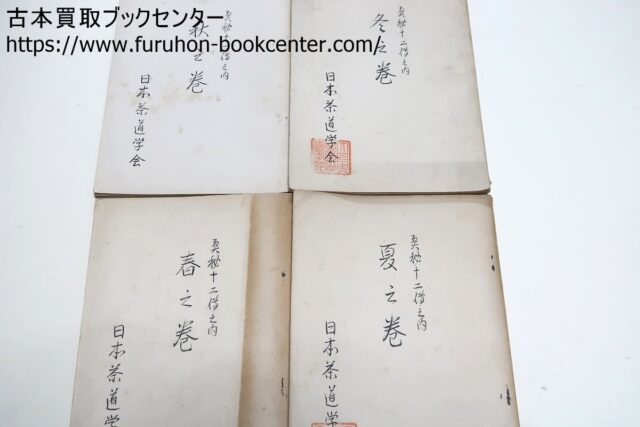 古本買取ブックセンター
https://www.furuhon-bookcenter.com/
奥秘十二傳之内
冬之巻
日本茶道学会
奥秘十二傳之内
秋之巻
日本茶道学会
奥秘十二傳之内
夏之巻
日本茶道学
奥秘十二傳之内
春之巻
日本茶道学